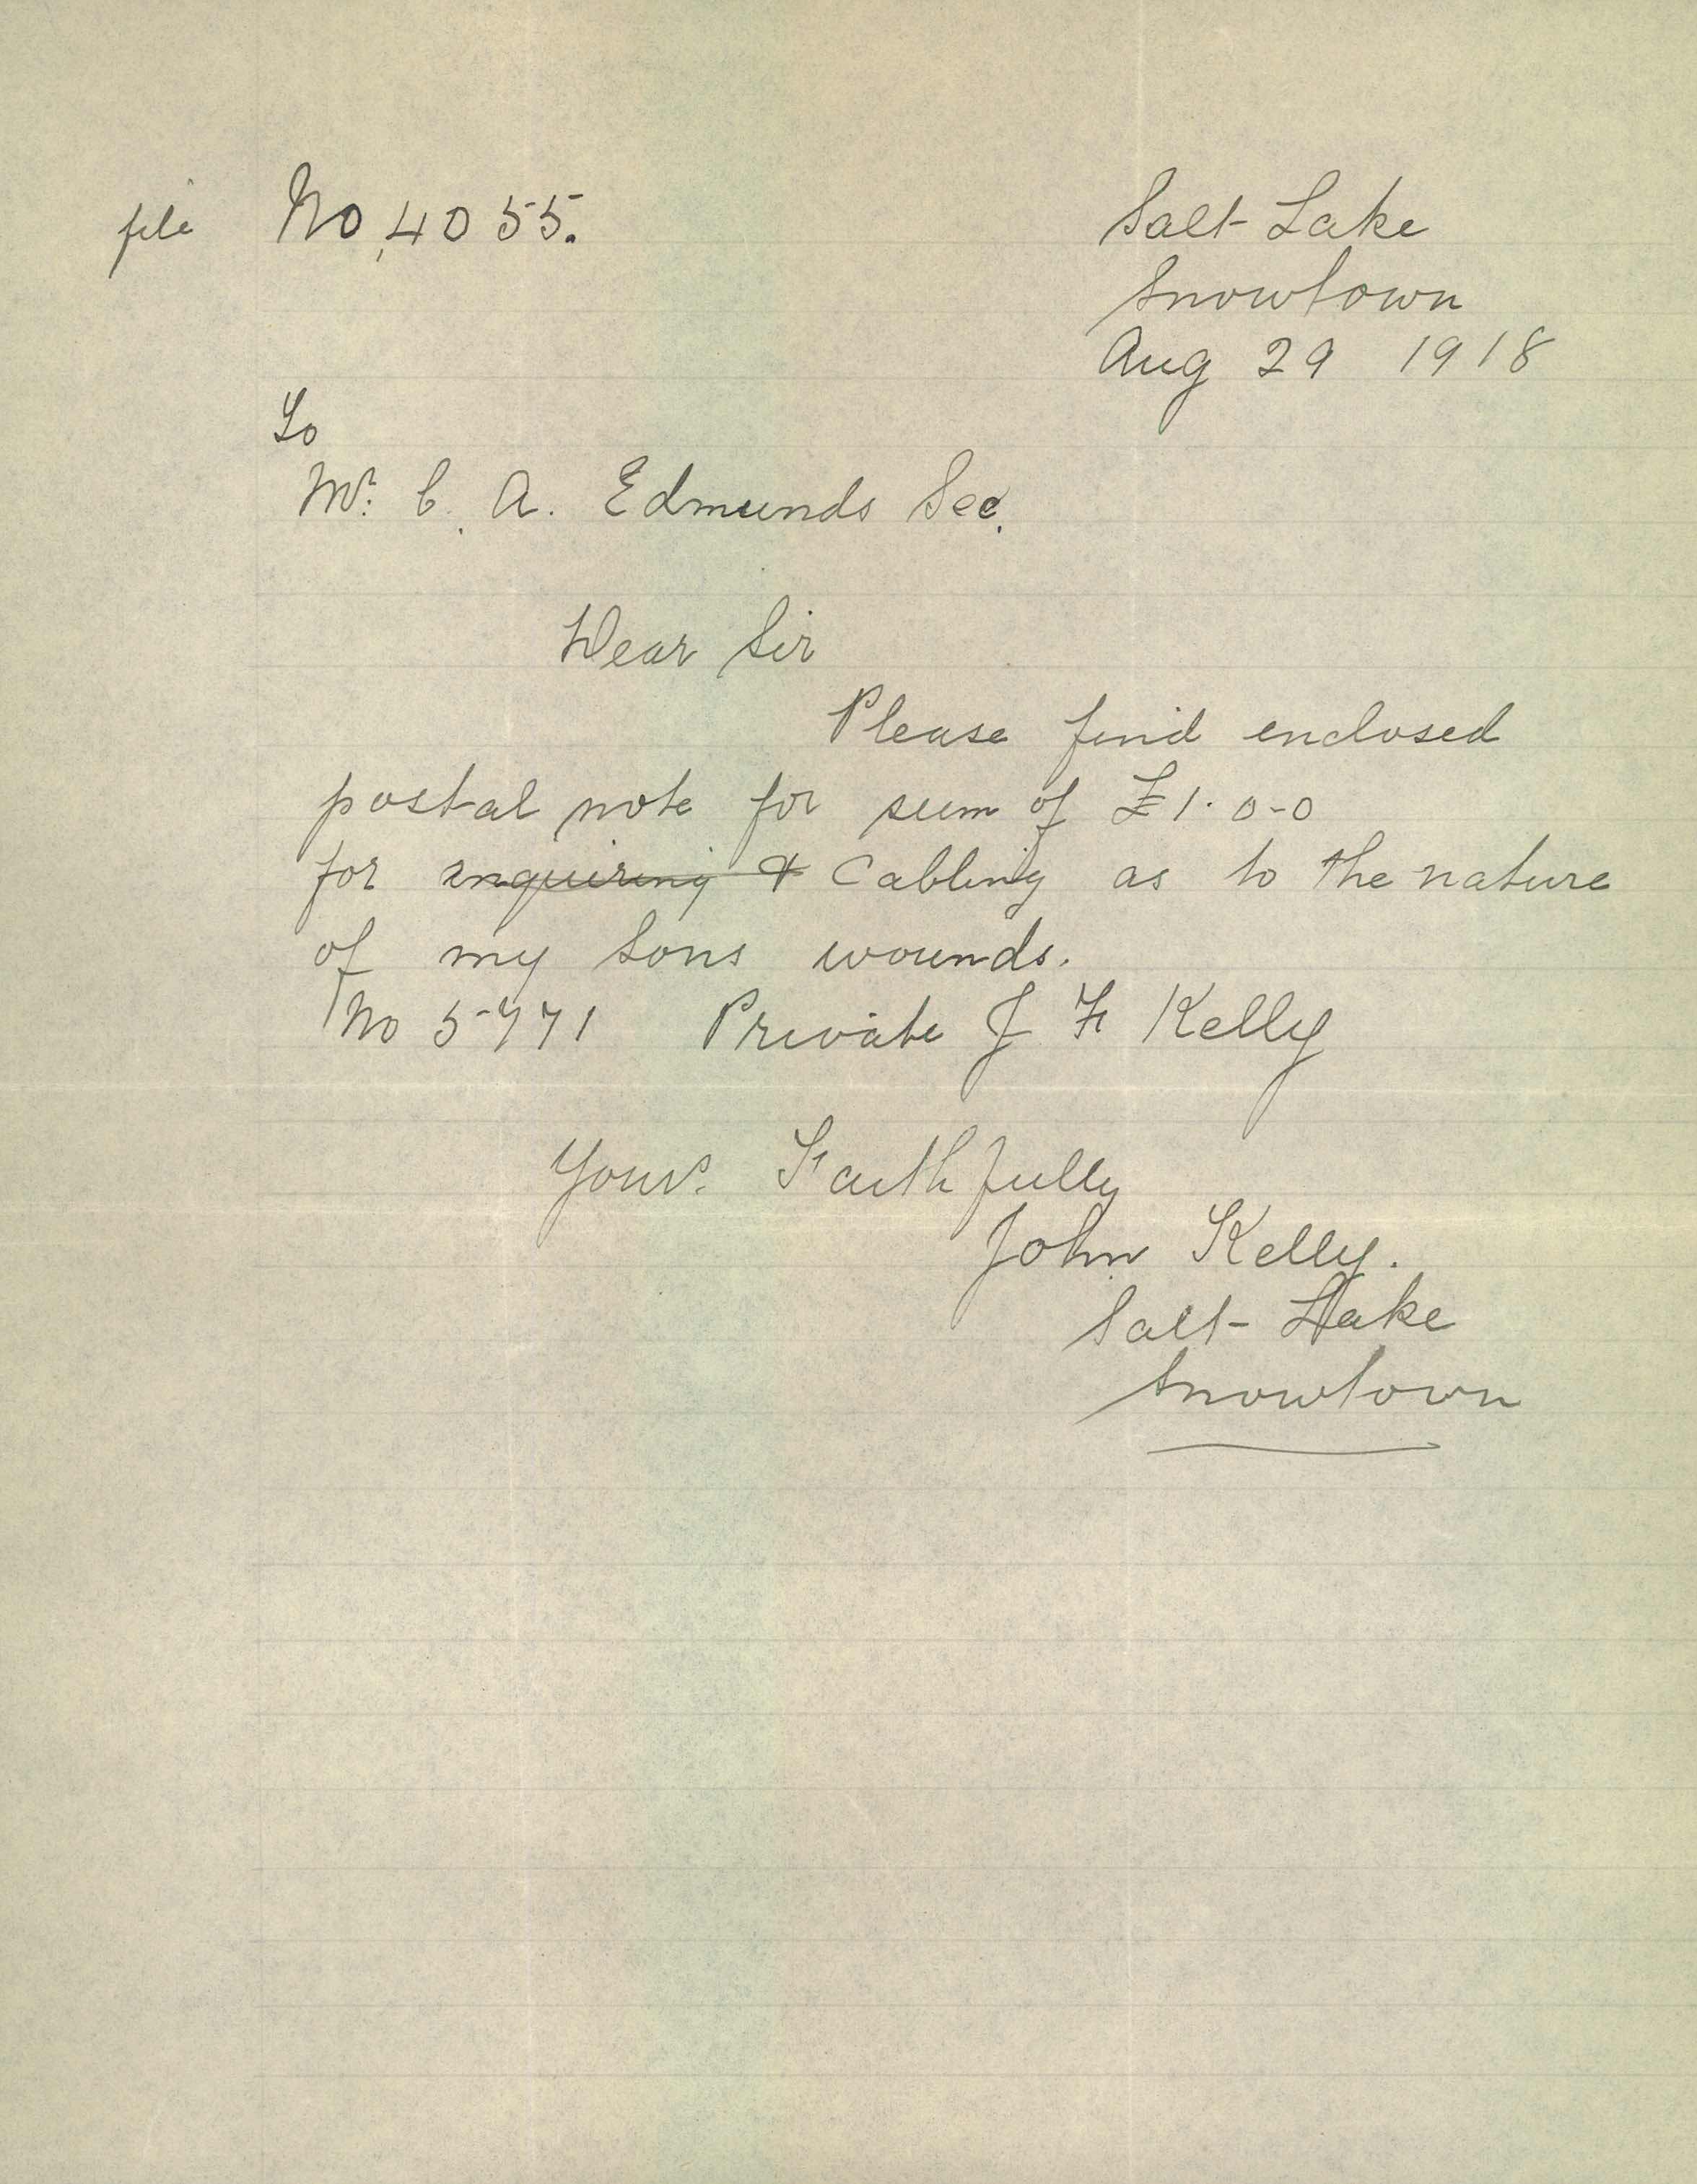 file No 4055.
Salt Lake
Snowtown
Aug 29 1918
To
Mr. C. A. Edmunds Sec.
Dear Sir
Please find enclosed
postal note for sum of £1.0-0
for enquiring & Cabling as to the nature
of my sons wounds.
No 5771 Private J F Kelly
Yours. Faithfully
John Kelly.
Salt Lake
Snowtown